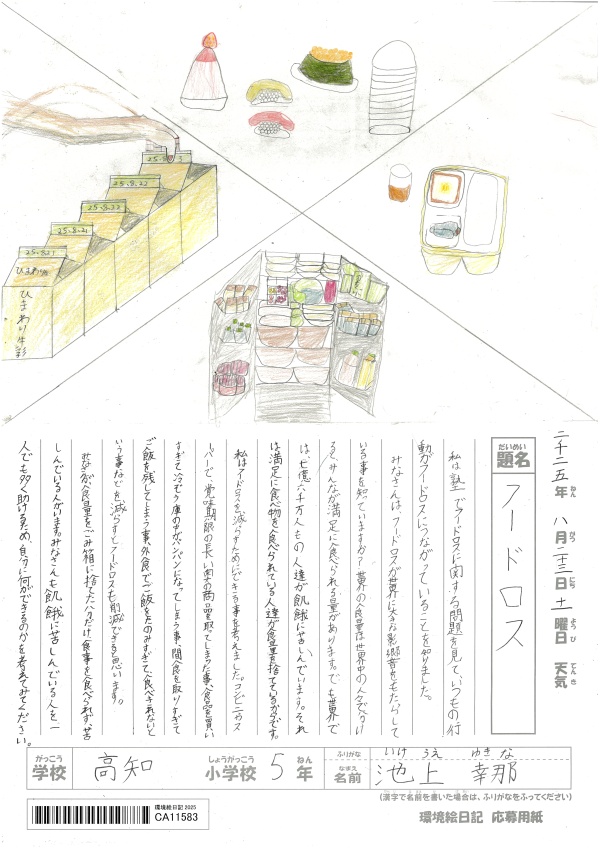 25.8.22
25.8.22
25.8.22
25.8.21
25.8.21
ひまわり
ひまわり牛彩
二千二五年 八月二三日 土曜日 天気
ねん がつ にち ようび てんき
だいめい
題名
フードロス
私は塾でフードロスに関する問題を見て、いつもの行
動がフードロスにつながっていることを知りました。
みなさんは、フードロスが世界に大きな影響をもたらして
いる事を知っていますか?世界の食量は世界中の人々でわけ
ると、みんなが満足に食べられる量があります。でも世界で
は、七億六千万人もの人達が飢餓に苦しんでいます。それ
は満足に食べ物を食べられている人達が食量を捨てているからです。
私はフードロスを減らすためにできる事を考えました。コンビニやス
ーパーで、賞味期限の長い奥の商品を取ってしまった事、食品を買い
すぎて冷ぞう庫の中がパンパンになってしまう事、間食を取りすぎて
ご飯を残してしまう事、外食でご飯をたのみすぎて、食べきれないと
いう事などを減らすとフードロスも削減できると思います。
みなが食量をごみ箱に捨てたバクだけ食事を食べられず、苦
しんでいる人がいます。みなさんも飢餓に苦しんでいる人を、一
人でも多く助けるため、自分に何ができるのかを考えてみてください。
がっこう しょうがっこう ねん ふりがな いけ うえ ゆき な
学校 高知 小学校 5年 なまえ 名前 池上 幸那
(漢字で名前を書いた場合は、ふりがなをふってください)
環境絵日記 2025
CA11583
環境絵日記 応募用紙